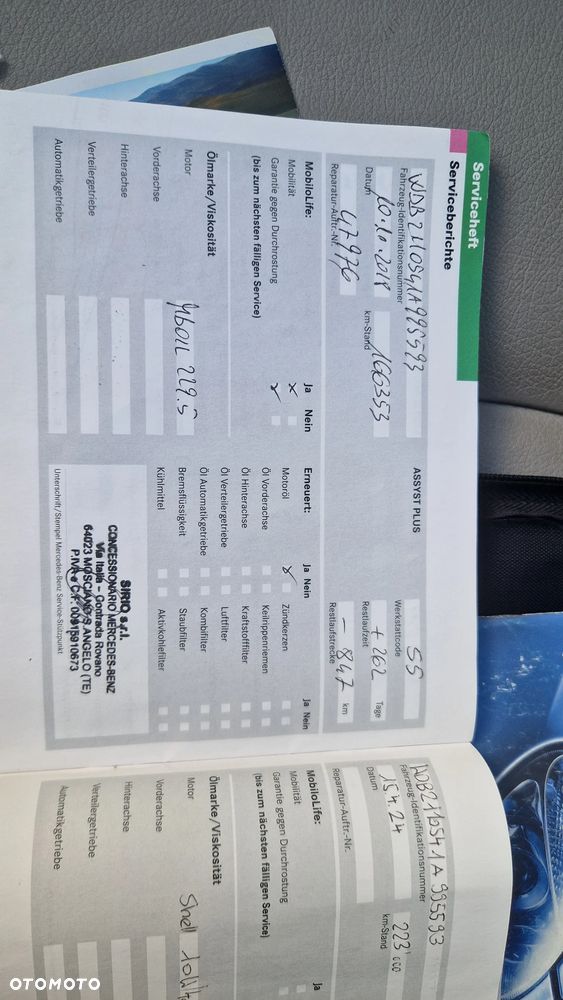 Serviceheft
Serviceberichte
WDB2110541A995593
Fahrzeug-Identifikationsnummer
ASSYST PLUS
55
Werkstattcode
10.10.2018
Datum
166353
km-Stand
+ 262 Tage
Restlaufzeit
47976
Reparatur-Auftr.-Nr.
- 847 km
Restlaufstrecke
MobiloLife: Ja Nein
Mobilität
Garantie gegen Durchrostung
(bis zum nächsten fälligen Service)
Erneuert: Ja Nein
Motoröl
Öl Vorderachse
Öl Hinterachse
Öl Verteilergetriebe
Öl Automatikgetriebe
Bremsflüssigkeit
Kühlmittel
Ja Nein
Zündkerzen
Keilrippenriemen
Kraftstofffilter
Luftfilter
Kombifilter
Staubfilter
Aktivkohlefilter
Ölmarke/Viskosität
Motor
229.5
Vorderachse
Hinterachse
Verteilergetriebe
Automatikgetriebe
SIRIO s.r.l.
CONCESSIONARIO MERCEDES-BENZ
Via Italia - Contrada Rovano
64023 MOSCIANO S. ANGELO (TE)
P.IVA e C.F. 00915910673
Unterschrift/Stempel Mercedes-Benz Service-Stützpunkt
WDB2110541A995593
Fahrzeug-Identifikationsnummer
15.4.24
Datum
223'000
km-Stand
Reparatur-Auftr.-Nr.
MobiloLife: Ja
Mobilität
Garantie gegen Durchrostung
(bis zum nächsten fälligen Service)
Ölmarke/Viskosität
Motor
Shell
Vorderachse
Hinterachse
Verteilergetriebe
Automatikgetriebe
OTOMOTO